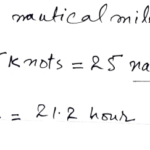 nautical mil
knots = 25 na
= 21.2 hour